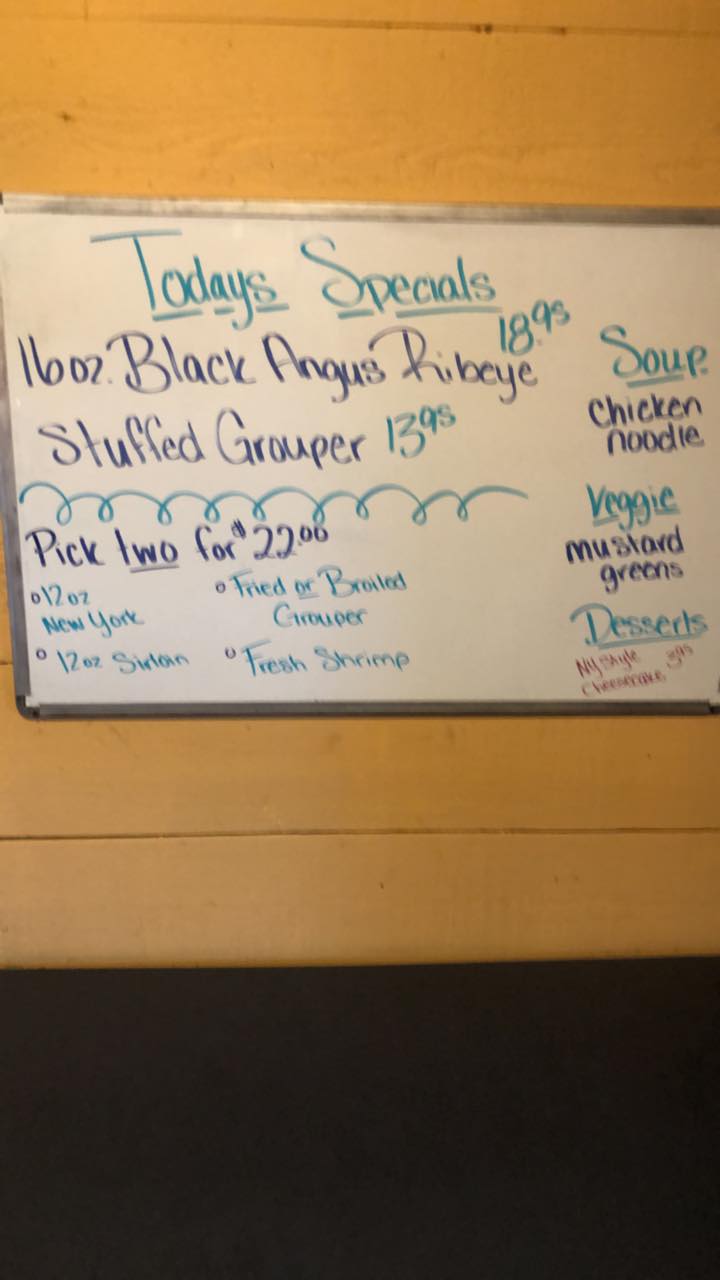 Todays Specials
16oz. Black Angus Ribeye 18.95
Stuffed Grouper 13.95
Pick two for $22.00
12oz
New York
12oz Sirloin
Fried or Broiled
Grouper
Fresh Shrimp
Soup
chicken
noodle
Veggie
mustard
greens
Desserts
NY Style 3.95
Cheesecake